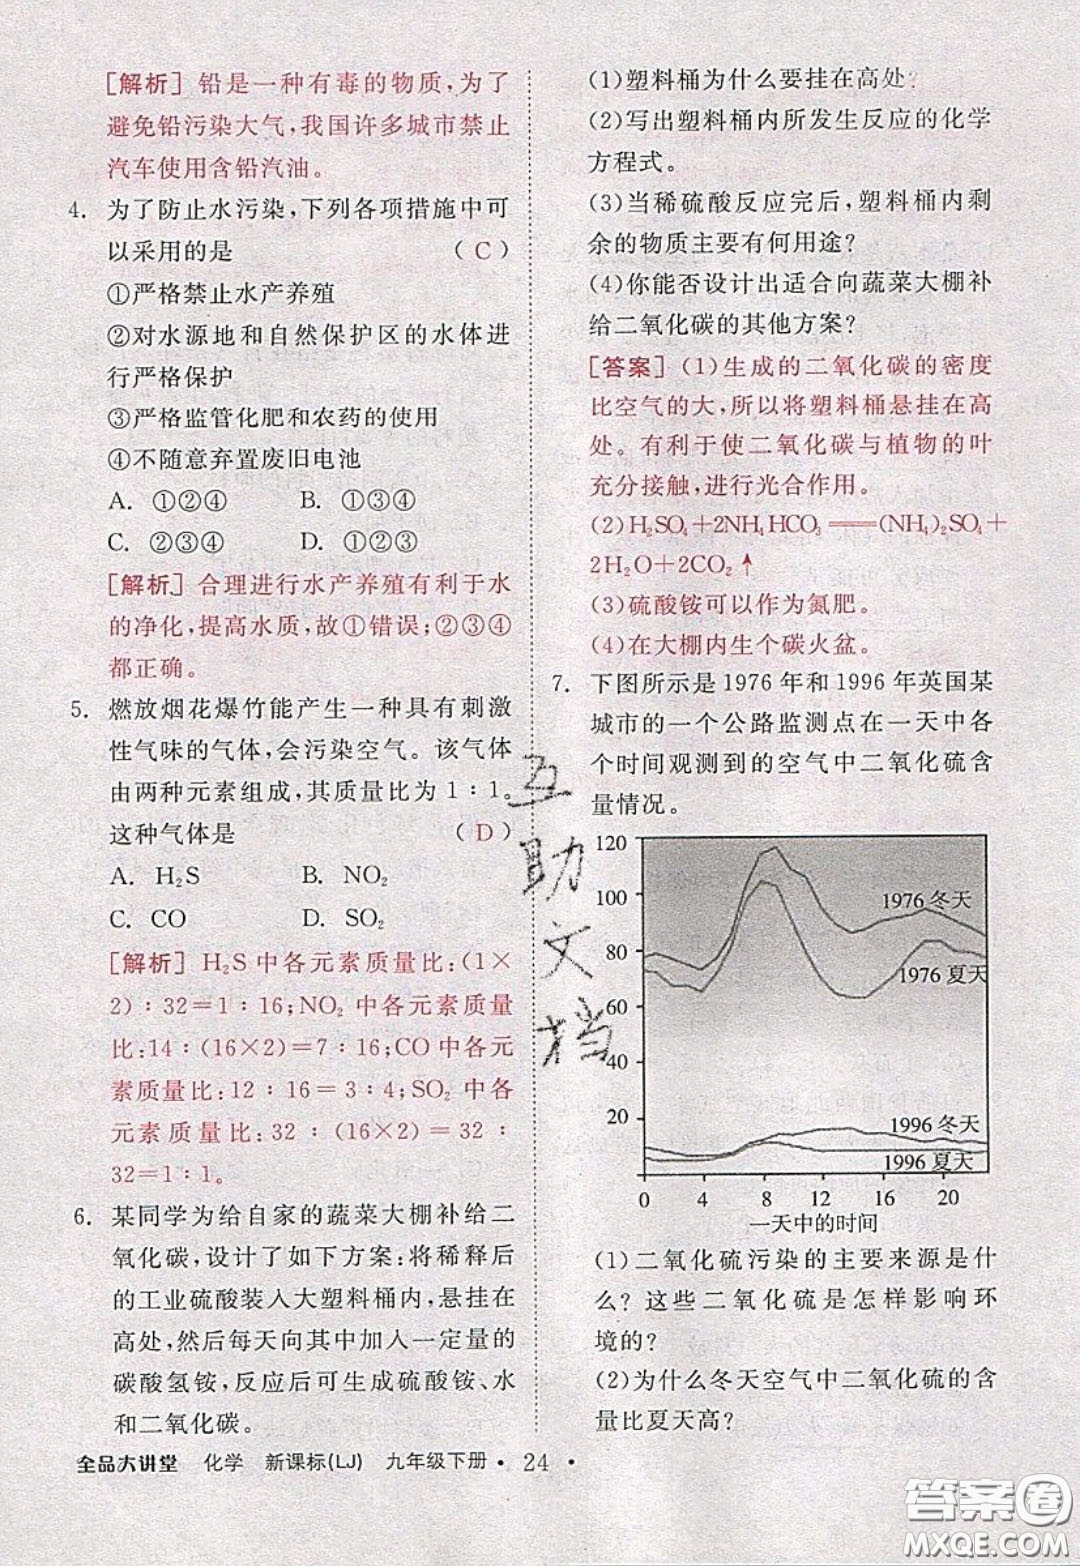 [解析]铅是一种有毒的物质,为了
避免铅污染大气,我国许多城市禁止
汽车使用含铅汽油。
4. 为了防止水污染,下列各项措施中可
以采用的是 ( C )
①严格禁止水产养殖
②对水源地和自然保护区的水体进
行严格保护
③严格监管化肥和农药的使用
④不随意弃置废旧电池
A. ①②④ B. ①③④
C. ②③④ D. ①②③
[解析]合理进行水产养殖有利于水
的净化,提高水质,故①错误;②③④
都正确。
5. 燃放烟花爆竹能产生一种具有刺激
性气味的气体,会污染空气。该气体
由两种元素组成,其质量比为1∶1。
这种气体是 ( D )
A. H₂S B. NO₂
C. CO D. SO₂
[解析]H₂S中各元素质量比:(1×
2)∶32=1∶16;NO₂中各元素质量
比:14∶(16×2)=7∶16;CO中各元
素质量比:12∶16=3∶4;SO₂中各
元素质量比:32∶(16×2)=32∶
32=1∶1。
6. 某同学为给自家的蔬菜大棚补给二
氧化碳,设计了如下方案:将稀释后
的工业硫酸装入大塑料桶内,悬挂在
高处,然后每天向其中加入一定量的
碳酸氢铵,反应后可生成硫酸铵、水
和二氧化碳。
(1)塑料桶为什么要挂在高处?
(2)写出塑料桶内所发生反应的化学
方程式。
(3)当稀硫酸反应完后,塑料桶内剩
余的物质主要有何用途?
(4)你能否设计出适合向蔬菜大棚补
给二氧化碳的其他方案?
[答案](1)生成的二氧化碳的密度
比空气的大,所以将塑料桶悬挂在高
处。有利于使二氧化碳与植物的叶
充分接触,进行光合作用。
(2)H₂SO₄+2NH₄HCO₃══(NH₄)₂SO₄+
2H₂O+2CO₂↑
(3)硫酸铵可以作为氮肥。
(4)在大棚内生个碳火盆。
7. 下图所示是1976年和1996年英国某
城市的一个公路监测点在一天中各
个时间观测到的空气中二氧化硫含
量情况。
120
100
80
60
40
20
1976冬天
1976夏天
1996冬天
1996夏天
0 4 8 12 16 20
一天中的时间
(1)二氧化硫污染的主要来源是什
么?这些二氧化硫是怎样影响环
境的?
(2)为什么冬天空气中二氧化硫的含
量比夏天高?
互助文档
全品大讲堂 化学 新课标(LJ) 九年级下册 • 24 •
答案卷
MXQE.COM